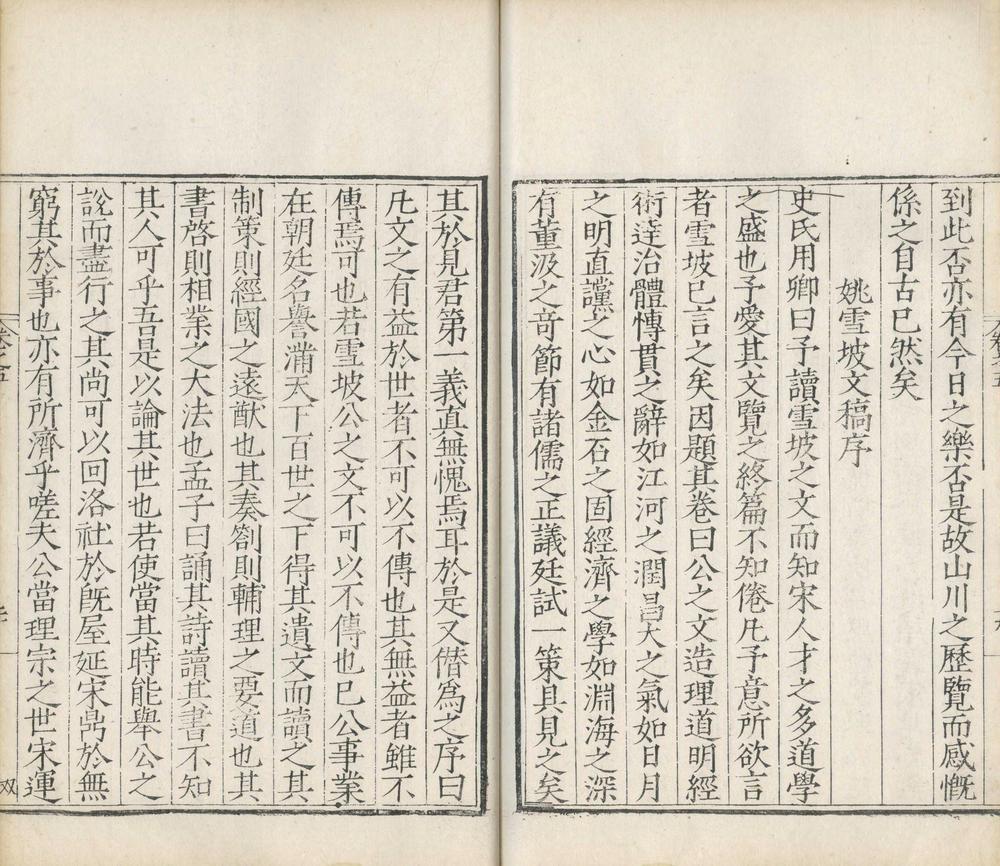 到此否亦有今日之樂否是故山川之歷覽而感慨
係之自古已然矣
姚雪坡文稿序
史氏用卿曰予讀雪坡之文而知宋人才之多道學
之盛也予愛其文覽之終篇不知倦凡予意所欲言
者雪坡已言之矣因題其卷曰公之文造理道明經
術達治體博貫之辭如江河之潤昌大之氣如日月
之明直讜之心如金石之固經濟之學如淵海之深
有董汲之竒節有諸儒之正議廷試一策具見之矣
其於見君第一義真無愧焉耳於是又僣爲之序曰
凡文之有益於世者不可以不傳也其無益者雖不
傳焉可也若雪坡公之文不可以不傳也已公事業
在朝廷名譽滿天下百世之下得其遺文而讀之其
制策則經國之遠猷也其奏劄則輔理之要道也其
書啓則相業之大法也孟子曰誦其詩讀其書不知
其人可乎吾是以論其世也若使當其時能舉公之
說而盡行之其尚可以回洛社於旣屋延宋鼎於無
窮其於事也亦有所濟乎嗟夫公當理宗之世宋運
卷之五